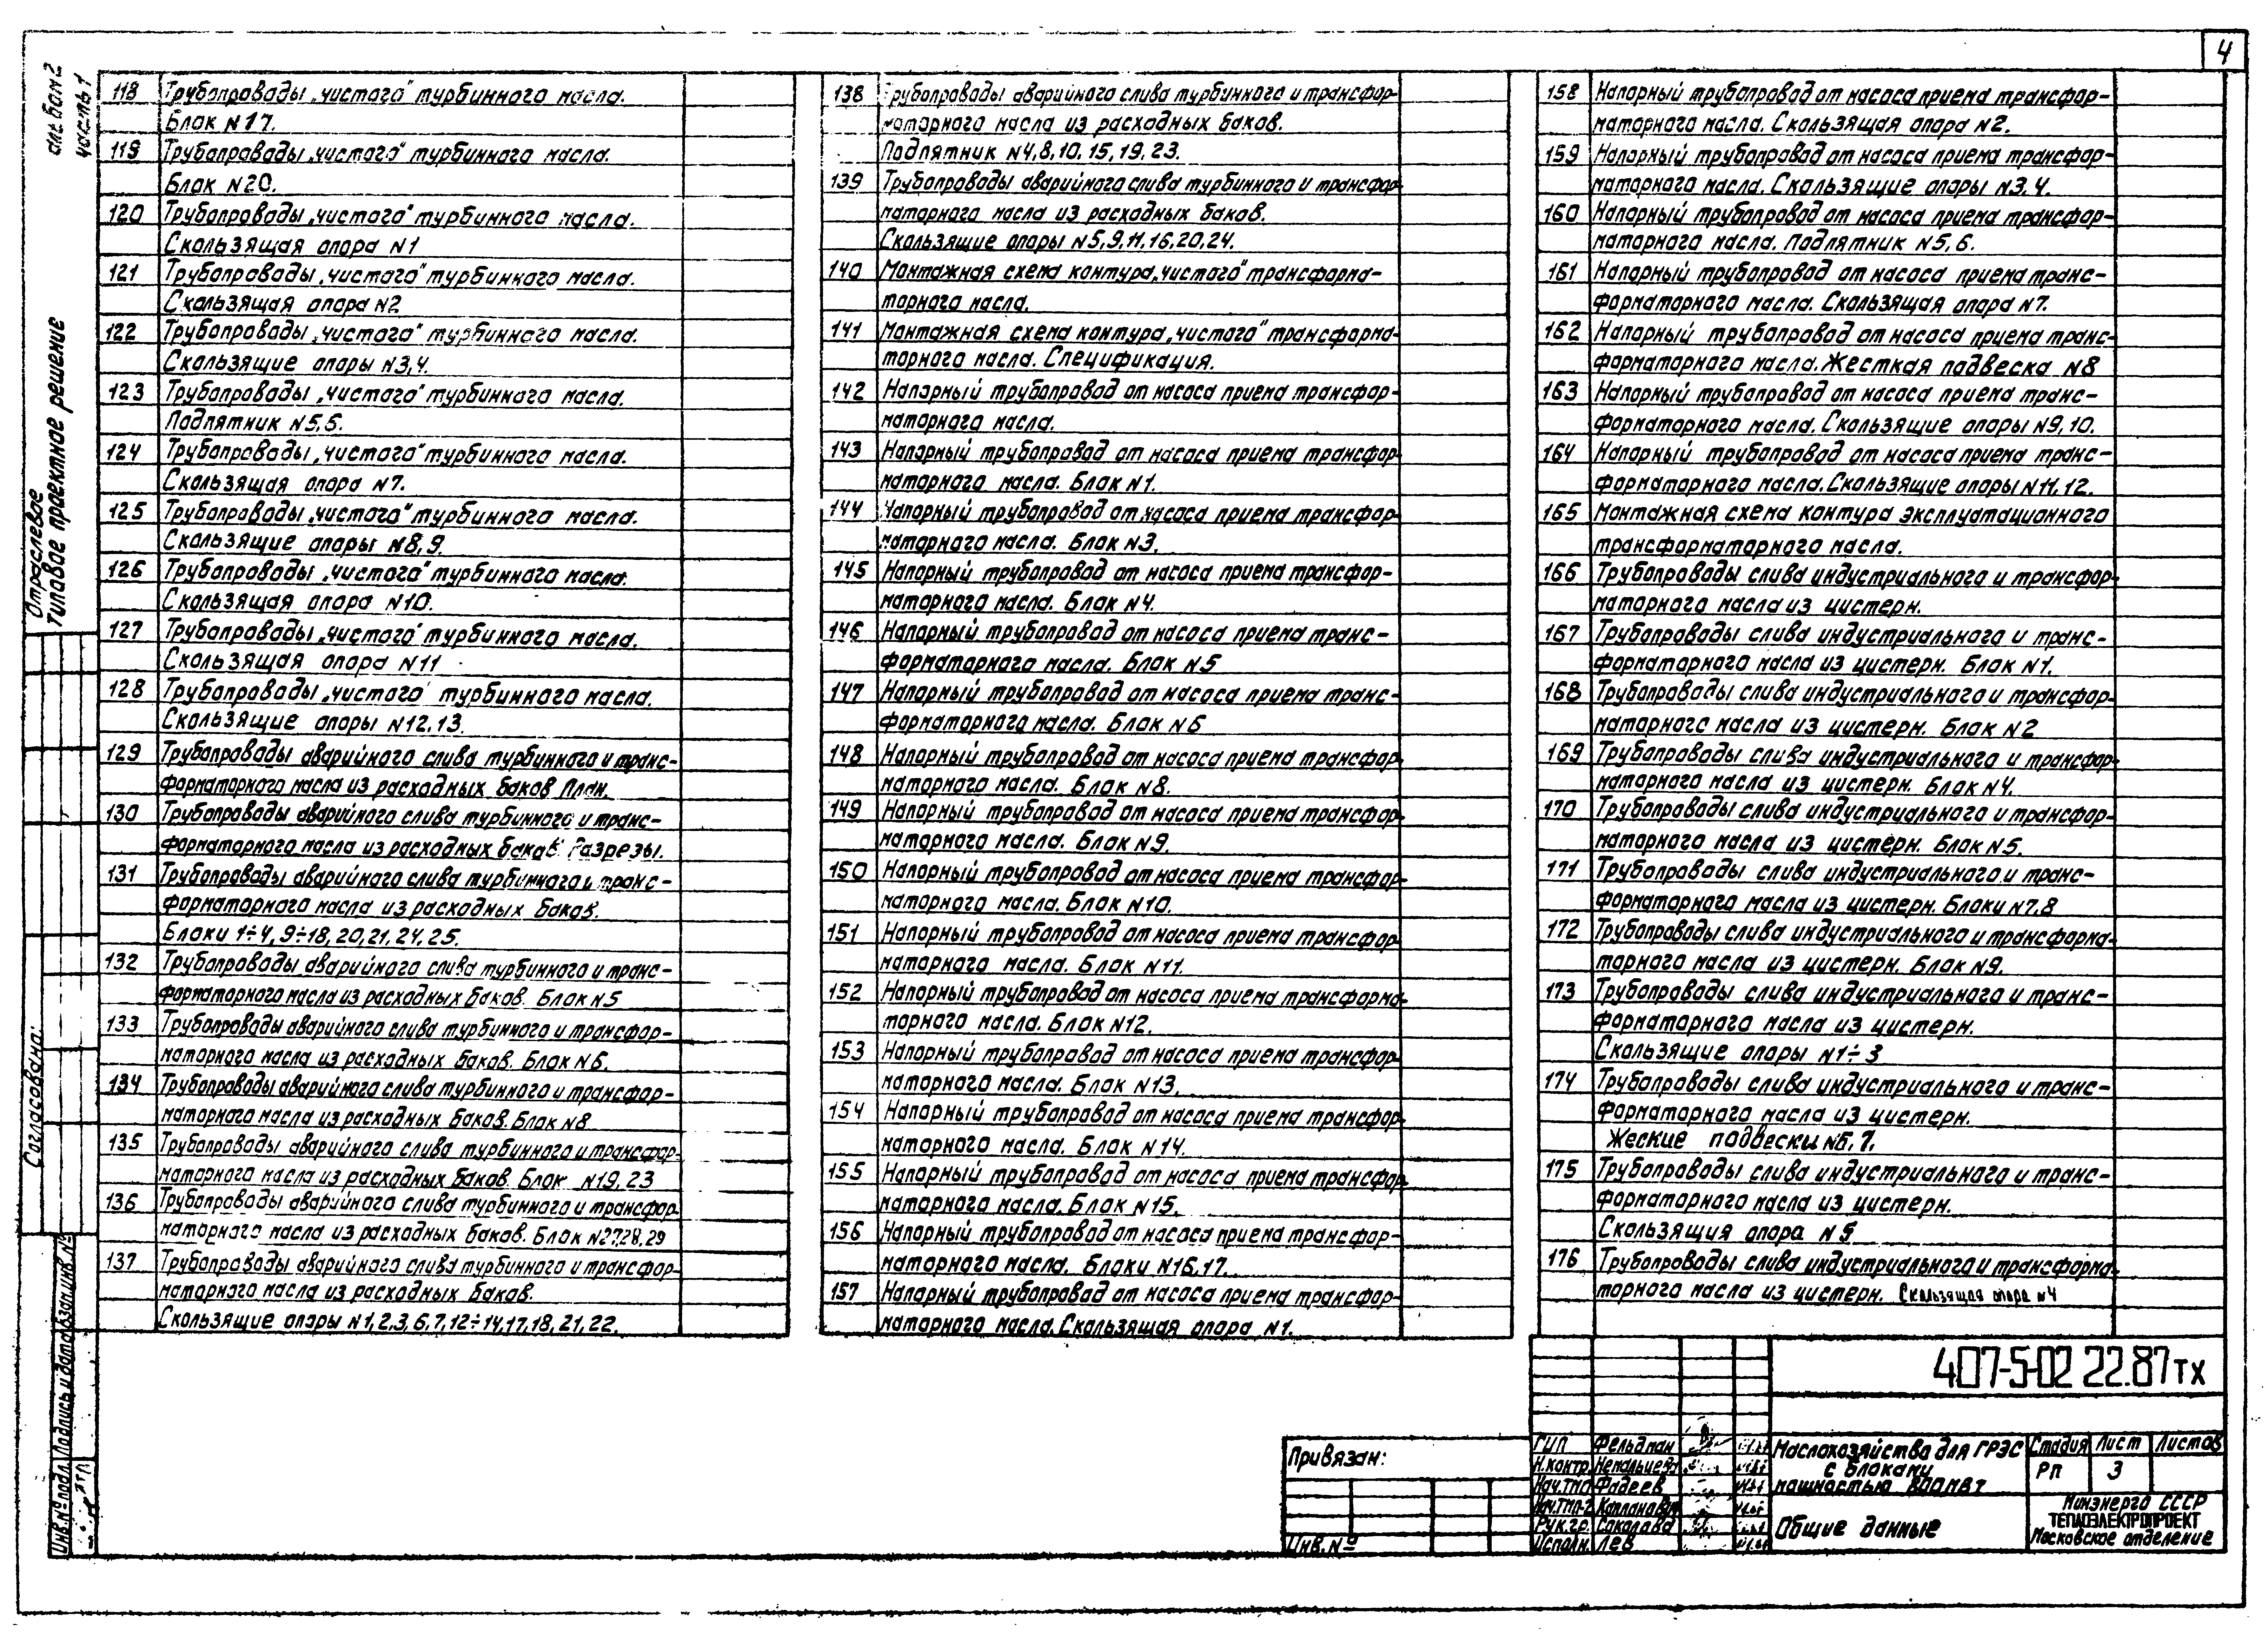 4
альбом 2
часть 1
Отраслевое
типовое проектное решение
Согласовано:
Инв.№ подл. Подпись и дата Взам.инв.№
118 Трубопроводы „чистого" турбинного масла.
Блок N17.
119 Трубопроводы „чистого" турбинного масла.
Блок N20.
120 Трубопроводы „чистого" турбинного масла.
Скользящая опора N1
121 Трубопроводы „чистого" турбинного масла.
Скользящая опора N2
122 Трубопроводы „чистого" турбинного масла.
Скользящие опоры N3,4.
123 Трубопроводы „чистого" турбинного масла.
Подпятник N5,6.
124 Трубопроводы „чистого" турбинного масла.
Скользящая опора N7.
125 Трубопроводы „чистого" турбинного масла.
Скользящие опоры N8,9.
126 Трубопроводы „чистого" турбинного масла.
Скользящая опора N10.
127 Трубопроводы „чистого" турбинного масла.
Скользящая опора N11
128 Трубопроводы „чистого" турбинного масла.
Скользящие опоры N12,13.
129 Трубопроводы аварийного слива турбинного и транс-
форматорного масла из расходных баков План.
130 Трубопроводы аварийного слива турбинного и транс-
форматорного масла из расходных баков. Разрезы.
131 Трубопроводы аварийного слива турбинного и транс-
форматорного масла из расходных баков.
Блоки 1÷4, 9÷18, 20,21,24,25.
132 Трубопроводы аварийного слива турбинного и транс-
форматорного масла из расходных баков. Блок N5
133 Трубопроводы аварийного слива турбинного и трансфор-
маторного масла из расходных баков. Блок N6.
134 Трубопроводы аварийного слива турбинного и трансфор-
маторного масла из расходных баков. Блок N8
135 Трубопроводы аварийного слива турбинного и трансфор-
маторного масла из расходных баков. Блок N19,23
136 Трубопроводы аварийного слива турбинного и трансфор-
маторного масла из расходных баков. Блок N27,28,29
137 Трубопроводы аварийного слива турбинного и трансфор-
маторного масла из расходных баков.
Скользящие опоры N1,2,3,6,7,12÷14,17,18,21,22.
138 Трубопроводы аварийного слива турбинного и трансфор-
маторного масла из расходных баков.
Подпятник N4,8,10,15,19,23.
139 Трубопроводы аварийного слива турбинного и трансфор-
маторного масла из расходных баков.
Скользящие опоры N5,9,11,16,20,24.
140 Монтажная схема контура „чистого" трансформа-
торного масла.
141 Монтажная схема контура „чистого" трансформа-
торного масла. Спецификация.
142 Напорный трубопровод от насоса приема трансфор-
маторного масла.
143 Напорный трубопровод от насоса приема трансфор-
маторного масла. Блок N1.
144 Напорный трубопровод от насоса приема трансфор-
маторного масла. Блок N3.
145 Напорный трубопровод от насоса приема трансфор-
маторного масла. Блок N4.
146 Напорный трубопровод от насоса приема транс-
форматорного масла. Блок N5
147 Напорный трубопровод от насоса приема транс-
форматорного масла. Блок N6
148 Напорный трубопровод от насоса приема трансфор-
маторного масла. Блок N8.
149 Напорный трубопровод от насоса приема трансфор-
маторного масла. Блок N9.
150 Напорный трубопровод от насоса приема трансфор-
маторного масла. Блок N10.
151 Напорный трубопровод от насоса приема трансфор-
маторного масла. Блок N11.
152 Напорный трубопровод от насоса приема трансформа-
торного масла. Блок N12.
153 Напорный трубопровод от насоса приема трансфор-
маторного масла. Блок N13.
154 Напорный трубопровод от насоса приема трансфор-
маторного масла. Блок N14.
155 Напорный трубопровод от насоса приема трансфор-
маторного масла. Блок N15.
156 Напорный трубопровод от насоса приема трансфор-
маторного масла. Блоки N16,17.
157 Напорный трубопровод от насоса приема трансфор-
маторного масла. Скользящая опора N1.
158 Напорный трубопровод от насоса приема трансфор-
маторного масла. Скользящая опора N2.
159 Напорный трубопровод от насоса приема трансфор-
маторного масла. Скользящие опоры N3,4.
160 Напорный трубопровод от насоса приема трансфор-
маторного масла. Подпятник N5,6.
161 Напорный трубопровод от насоса приема транс-
форматорного масла. Скользящая опора N7.
162 Напорный трубопровод от насоса приема транс-
форматорного масла. Жесткая подвеска N8
163 Напорный трубопровод от насоса приема транс-
форматорного масла. Скользящие опоры N9,10.
164 Напорный трубопровод от насоса приема транс-
форматорного масла. Скользящие опоры N11,12.
165 Монтажная схема контура эксплуатационного
трансформаторного масла.
166 Трубопроводы слива индустриального и трансфор-
маторного масла из цистерн.
167 Трубопроводы слива индустриального и транс-
форматорного масла из цистерн. Блок N1.
168 Трубопроводы слива индустриального и трансфор-
маторного масла из цистерн. Блок N2
169 Трубопроводы слива индустриального и трансфор-
маторного масла из цистерн. Блок N4.
170 Трубопроводы слива индустриального и трансфор-
маторного масла из цистерн. Блок N5.
171 Трубопроводы слива индустриального и транс-
форматорного масла из цистерн. Блоки N7,8
172 Трубопроводы слива индустриального и трансформа-
торного масла из цистерн. Блок N9.
173 Трубопроводы слива индустриального и транс-
форматорного масла из цистерн.
Скользящие опоры N1÷3
174 Трубопроводы слива индустриального и транс-
форматорного масла из цистерн.
Жеские подвески N6,7.
175 Трубопроводы слива индустриального и транс-
форматорного масла из цистерн.
Скользящия опора N5
176 Трубопроводы слива индустриального и трансформа-
торного масла из цистерн. Скользящая опора N4
Привязан:
Инв.№
407-5-02 22.87 ТХ
ГИП Фельдман
Н.контр.
Нач.ТМО Фадеев
Нач.ТМО-2
Рук.гр. Соколова
Исполн. Лев
Маслохозяйства для ГРЭС
с блоками
мощностью 800МВт
Стадия Лист Листов
РП 3
Общие данные
Минэнерго СССР
ТЕПЛОЭЛЕКТРОПРОЕКТ
Московское отделение